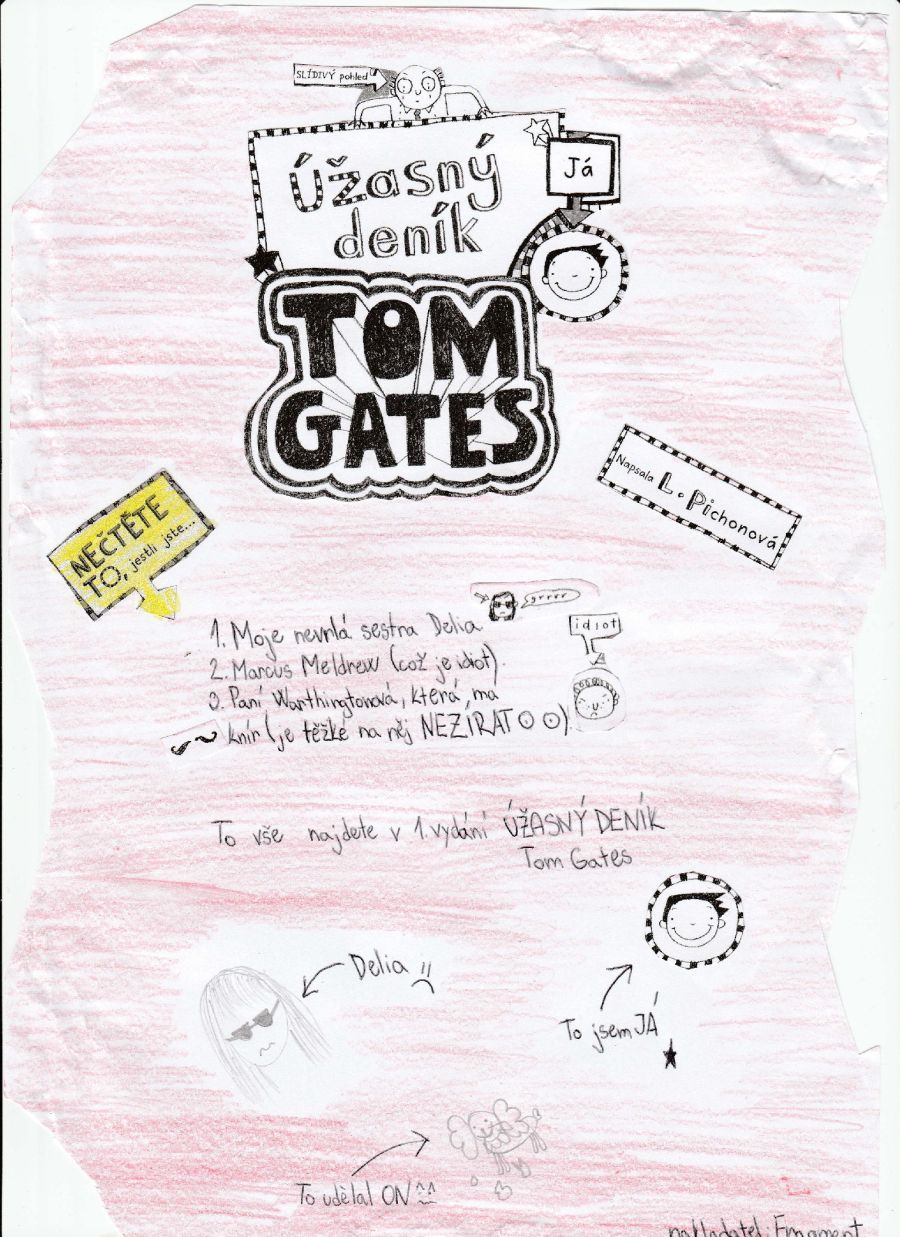 SLÍDIVÝ pohled
Úžasný
deník
Já
TOM
GATES
Napsala L. Pichonová
NEČTĚTE
TO, jestli jste...
grrrr
1. Moje nevrlá sestra Delia
idiot
2. Marcus Meldrew (což je idiot).
3. Paní Warthingtonová, která ma
knír (je těžké na něj NEZIRAT)
To vše najdete v 1. vydání ÚŽASNÝ DENÍK
Tom Gates
Delia
To jsem JÁ
To udělal ON
nakladatel: Fragment